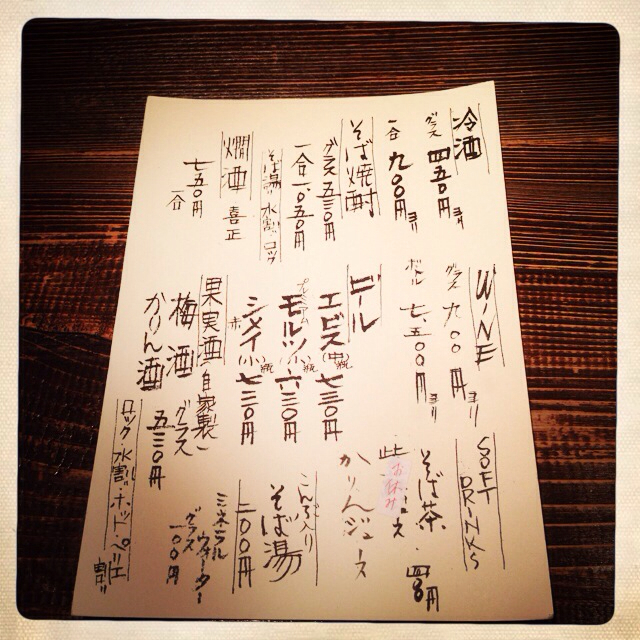 冷酒
グラス 四五〇円ヨリ
一合 九〇〇円ヨリ
そば焼酎
グラス 五三〇円
一合 一〇五〇円
そば湯 水割 ロック
燗酒 喜正
七五〇円
一合
WINE
グラス 九〇〇円ヨリ
ボトル 七、五〇〇円ヨリ
ビール
エビス(中瓶) 七三〇円
プレミアム
モルツ(小瓶) 六三〇円
シメイ(小瓶) 七三〇円
赤
果実酒(自家製)
梅酒 グラス
かりん酒 五三〇円
ロック 水割 ホット ペリエ割
SOFT DRINKS
そば茶
お休み
四〇円
かりんジュース
こんぶ入り
そば湯
二〇〇円
ミネラル
ウォーター
グラス 一〇〇円